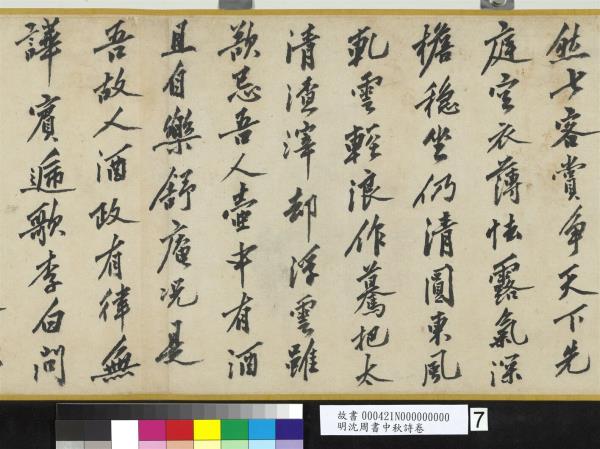 然七客賞爭天下先
庭空衣薄怯露氣深
檐穩坐仍清圓東風
軋雲輕浪作驀把太
清渣滓却浮雲雖
欲忌吾人壺中有酒
且自樂舒庵況是
吾故人酒政有律無
譁賓遞歌李白問
故書 000421N000000000
明沈周書中秋詩卷
7